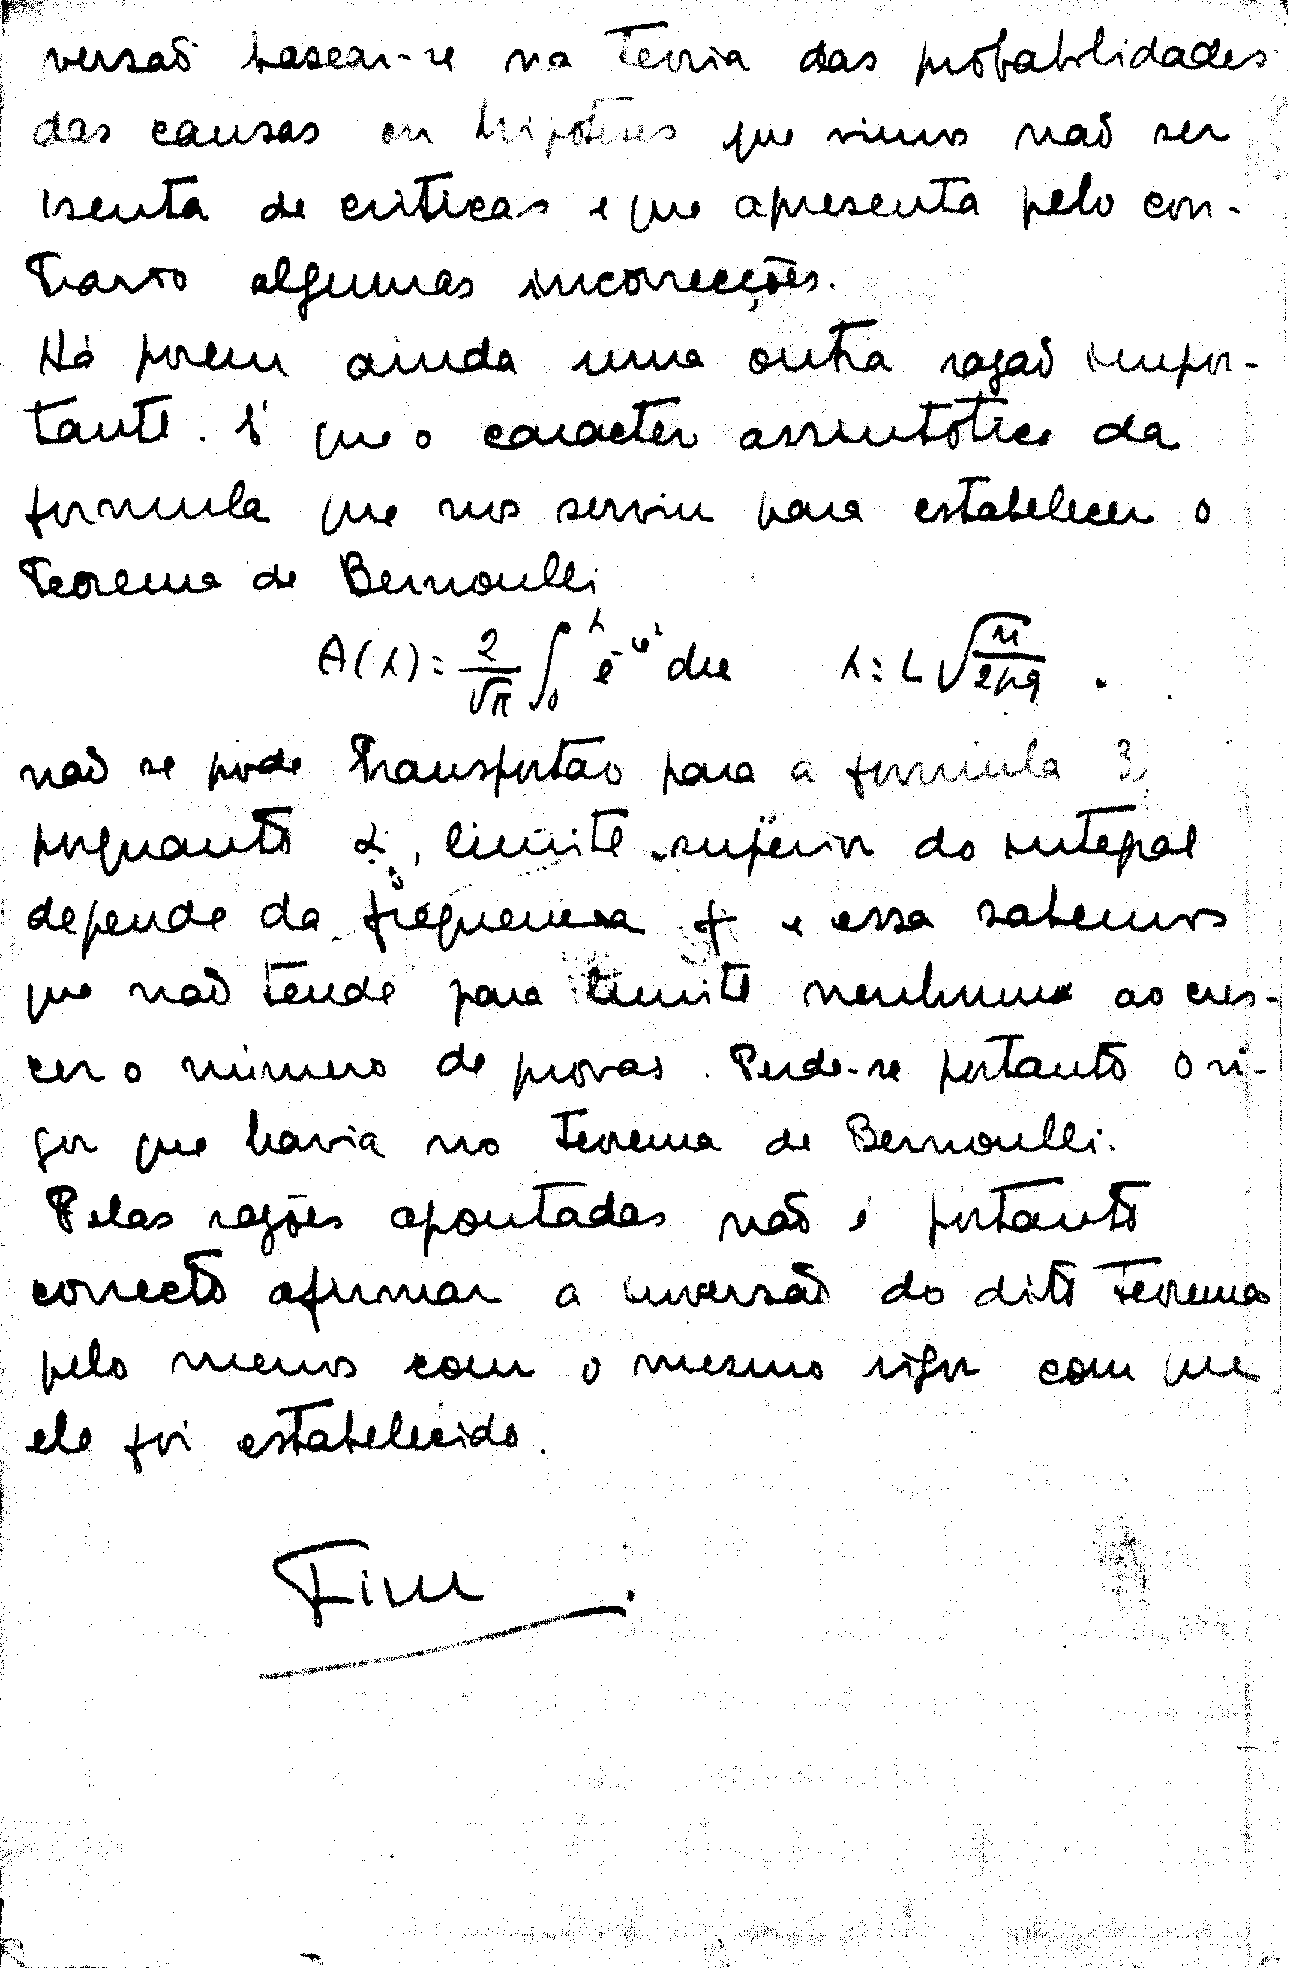 versão basear-se na teoria das probabilidades
das causas ou hipóteses que vimos não ser
isenta de criticas e que apresenta pelo con-
trario algumas incorrecções.
Há porem ainda uma outra razão impor-
tante. É que o caracter assintótico da
formula que nos serviu para estabelecer o
Teorema de Bernoulli
A(λ) = 2/√π ∫₀^λ e^-u² du   λ = L √(n/2pq) .
não se pode transportar para a formula 3,
porquanto λ, limite superior do integral
depende da frequencia f e essa sabemos
que não tende para limite nenhum ao cres-
cer o número de provas. Perde-se portanto o ri-
gor que havia no Teorema de Bernoulli.
Pelas razões apontadas não é portanto
correcto afirmar a inversão do dito Teorema
pelo menos com o mesmo rigor com que
ele foi estabelecido.
Fim.